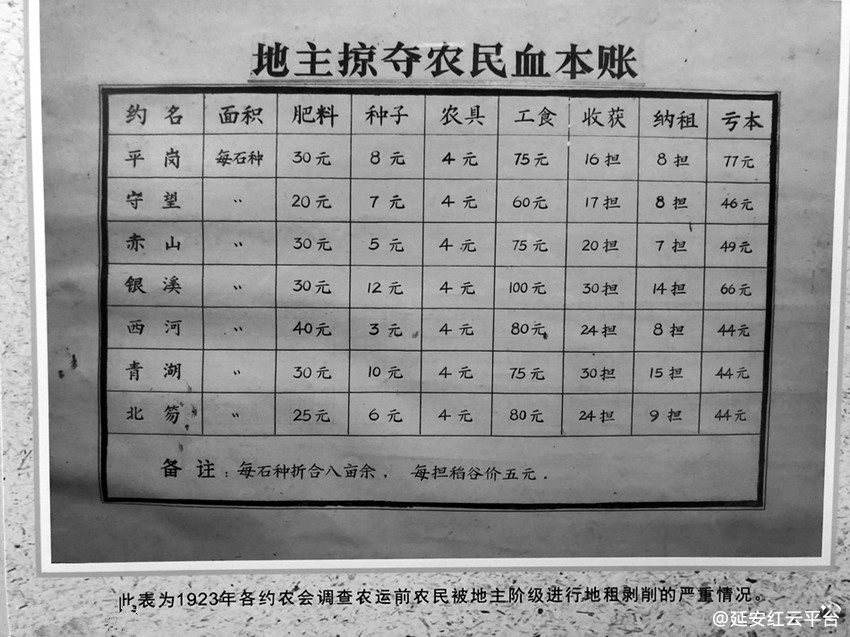 地主掠夺农民血本账
约名 面积 肥料 种子 农具 工食 收获 纳租 亏本
平岗 每石种 30元 8元 4元 75元 16担 8担 77元
守望 〃 20元 7元 4元 60元 17担 8担 46元
赤山 〃 30元 5元 4元 75元 20担 7担 49元
银溪 〃 30元 12元 4元 100元 30担 14担 66元
西河 〃 40元 3元 4元 80元 24担 8担 44元
青湖 〃 30元 10元 4元 75元 30担 15担 44元
北笏 〃 25元 6元 4元 80元 24担 9担 44元
备注：每石种折合八亩余，每担稻谷价五元.
此表为1923年各约农会调查农运前农民被地主阶级进行地租剥削的严重情况。
@延安红云平台